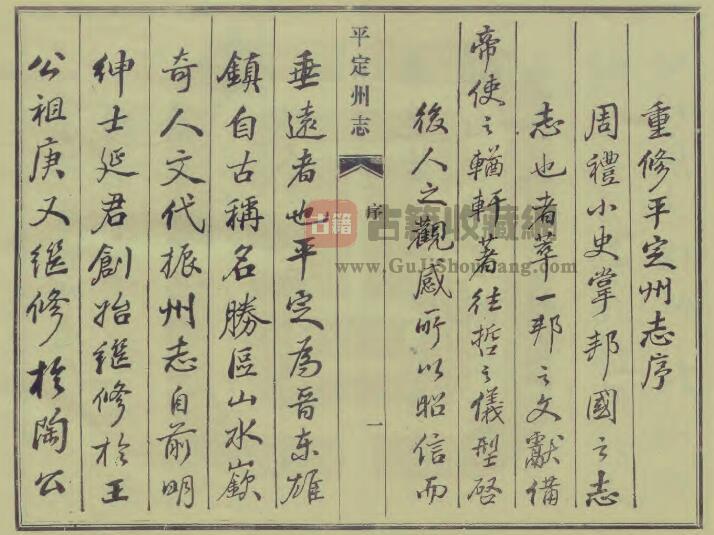 重修平定州志序
周禮小史掌邦國之志
志也者萃一邦之文獻備
帝使之輶軒著往哲之儀型啓
後人之觀感所以昭信而
平定州志
序
一
垂遠者也平定為晋東雄
鎮自古稱名勝區山水嶔
奇人文代振州志自前明
紳士延君創始繼修於王
公祖庚又繼修於陶公
古籍
古籍收藏網
www.GuJiShouCang.com